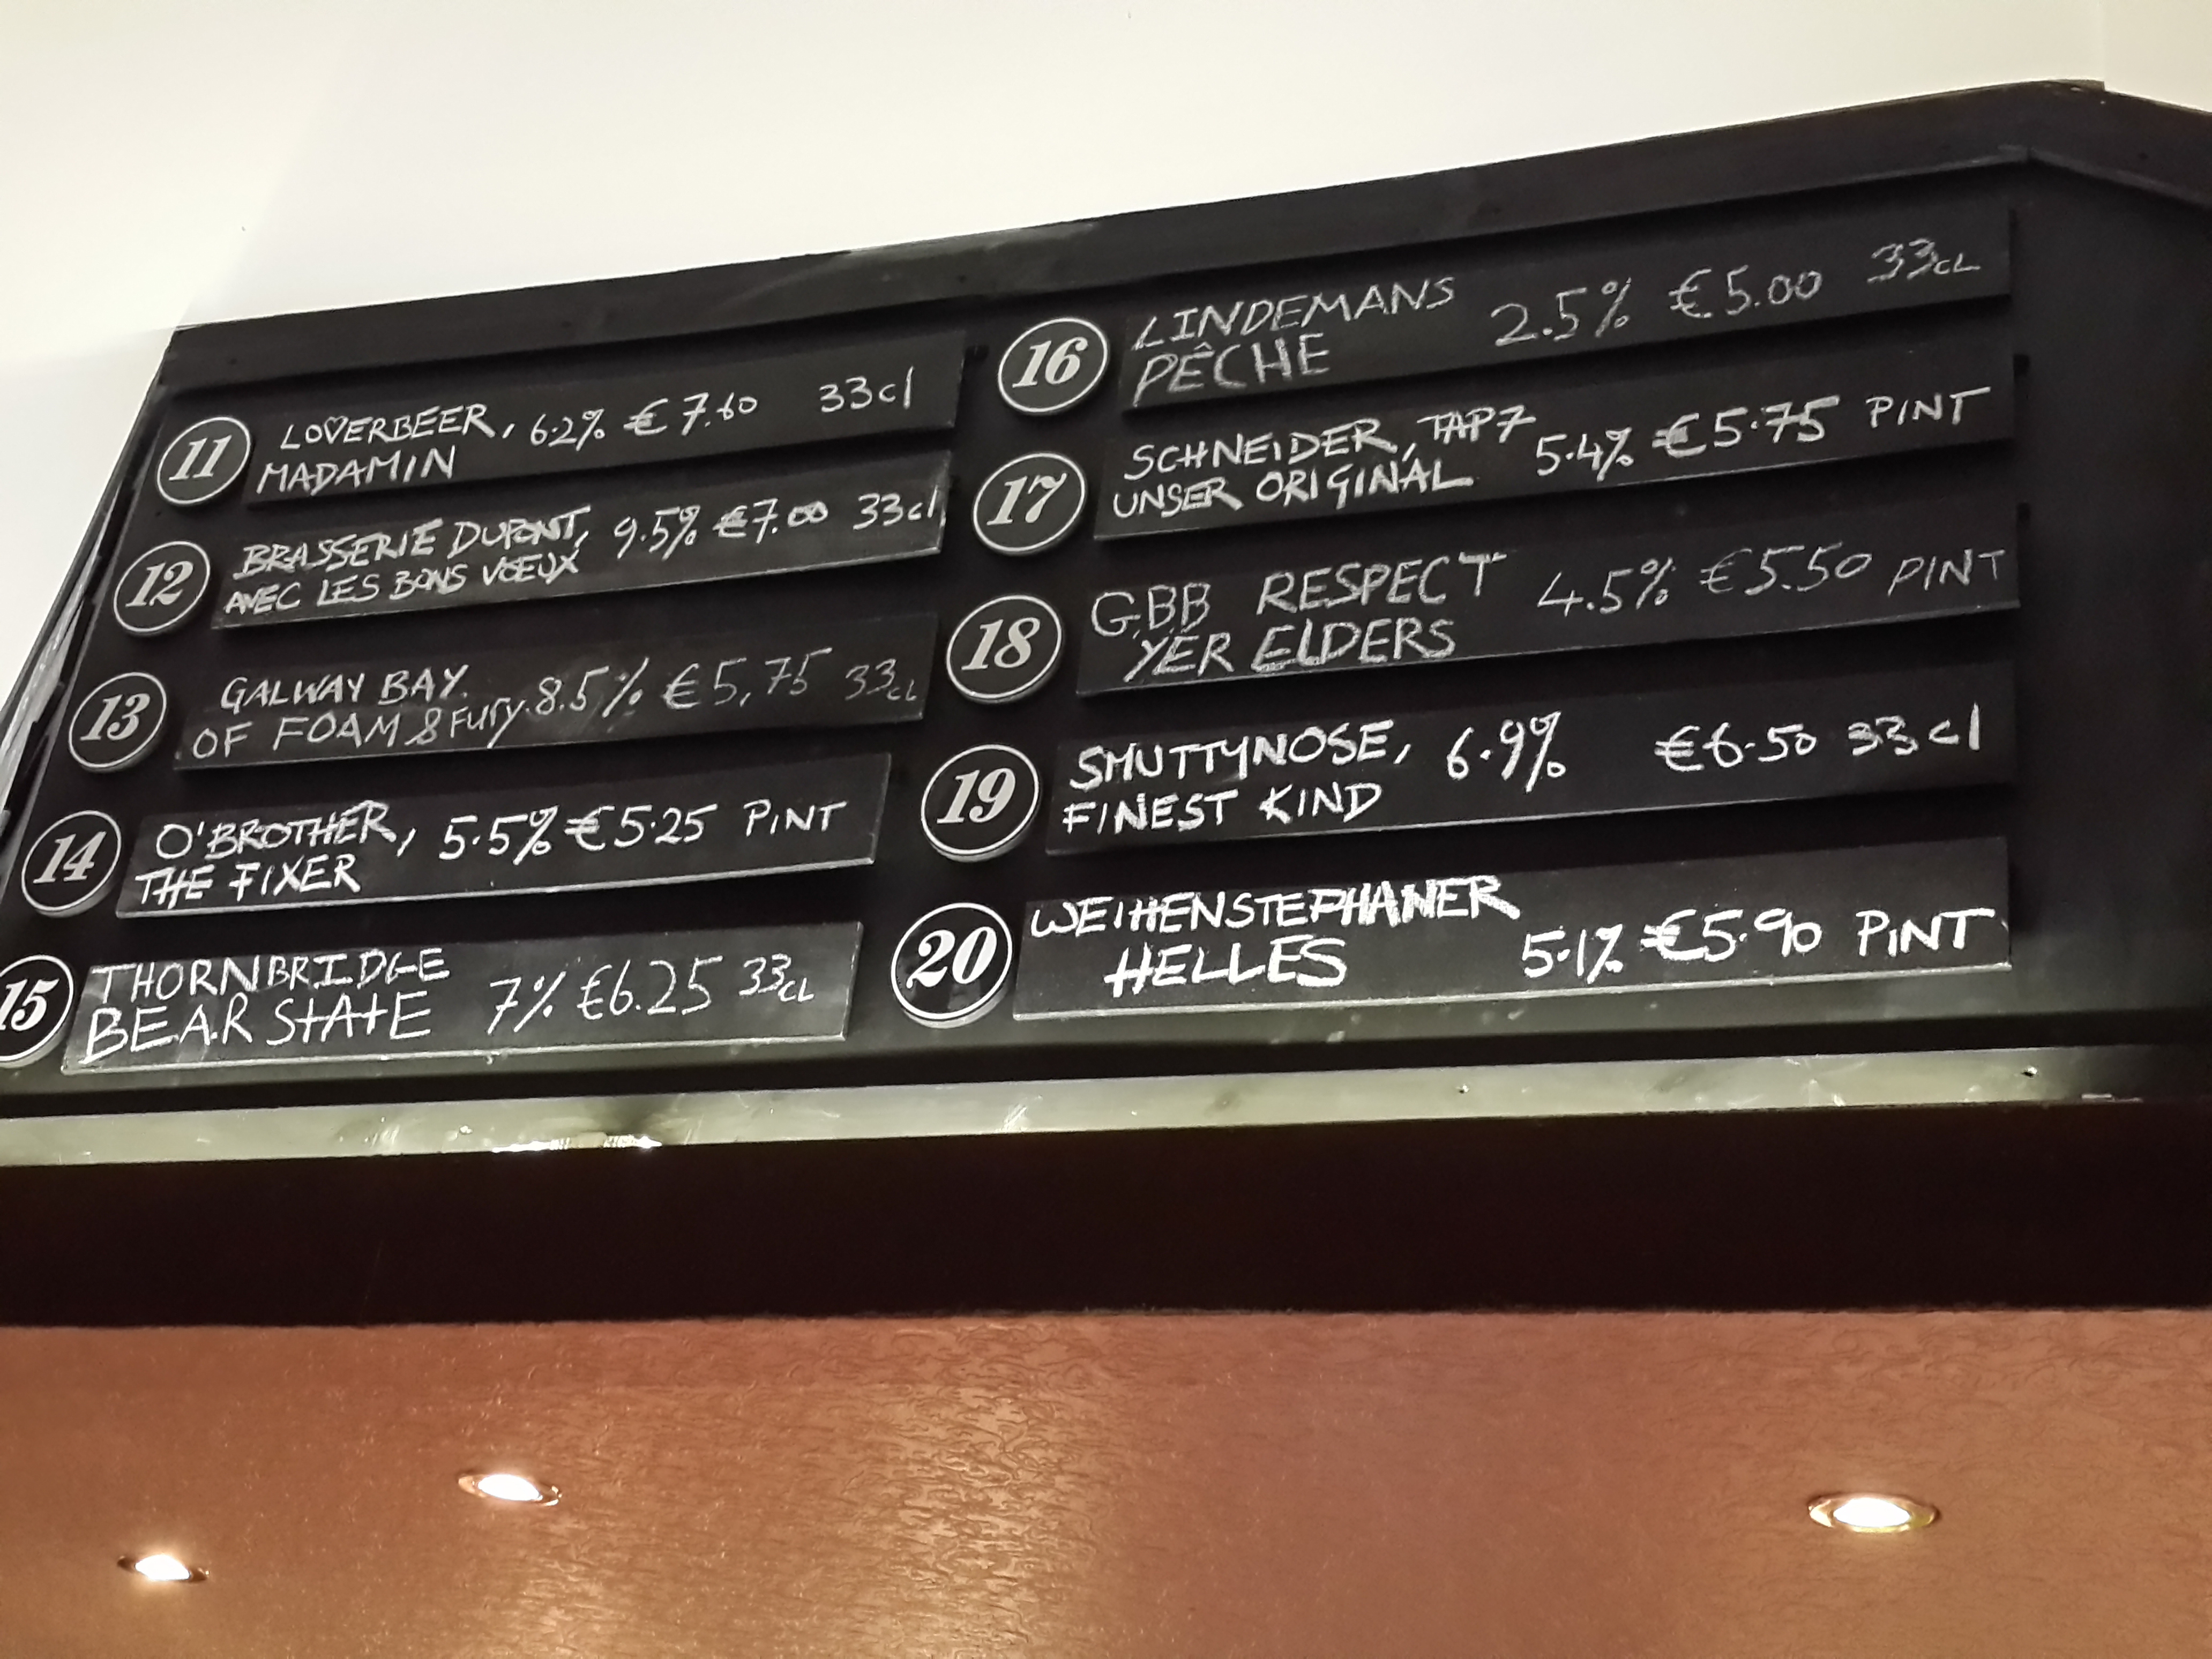 11 LOVERBEER, 6.2% €7.60 33cl
MADAMIN
12 BRASSERIE DUPONT, 9.5% €7.00 33cl
AVEC LES BONS VOEUX
13 GALWAY BAY.
OF FOAM & Fury. 8.5% €5,75 33cL
14 O'BROTHER, 5.5% €5.25 PINT
THE FIXER
15 THORNBRIDGE
BEAR STATE 7% €6.25 33CL
16 LINDEMANS 2.5% €5.00 33CL
PÊCHE
17 SCHNEIDER, TAP7 5.4% €5.75 PINT
UNSER ORIGINAL
18 GBB RESPECT 4.5% €5.50 PINT
YER ELDERS
19 SMUTTYNOSE, 6.9% €6.50 33cl
FINEST KIND
20 WEIHENSTEPHANER
HELLES 5.1% €5.90 PINT